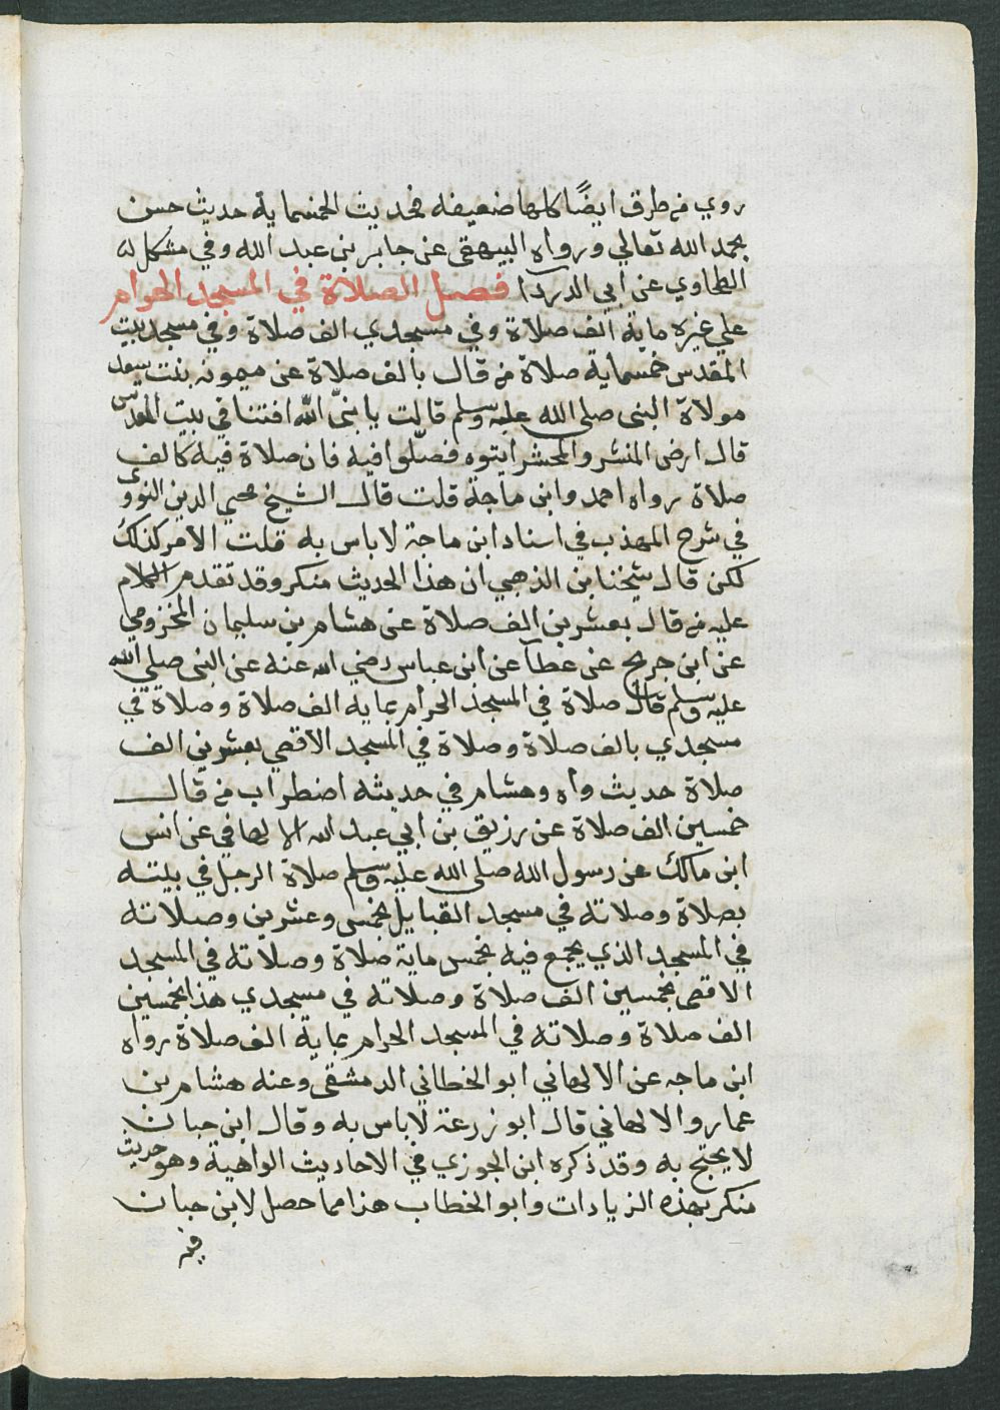 روي من طرق ايضًا كلها ضعيفه فحديث الخمسماية حديث حسن
بحمد الله تعالي ورواه البيهقي عن جابر بن عبد الله وفي مشكل له
الطحاوي عن ابي الدردآ فصل الصلاة في المسجد الحرام
علي غيره ماية الف صلاة وفي مسجدي الف صلاة وفي مسجد بيت
المقدس خمسماية صلاة من قال بالف صلاة عن ميمونه بنت سعد
مولاة النبي صلي الله عليه وسلم قالت يا نبيّ الله افتنا في بيت المقدس
قال ارض المنشر والمحشر ايتوه فصلّوا فيه فان صلاة فيه كالف
صلاة رواه احمد وابن ماجة قلت قال الشيخ محيي الدين النووي
في شرح المهذب في اسناد ابن ماجة لا باس به قلت الامر كذلك
لكن قال شيخنا بن الذهبي ان هذا الحديث منكر وقد تقدم الكلام
عليه من قال بعشرين الف صلاة عن هشام بن سليمان المخزومي
عن ابن جريج عن عطآ عن ابن عباس رضي الله عنه عن النبي صلي الله
عليه وسلم قال صلاة في المسجد الحرام بماية الف صلاة وصلاة في
مسجدي بالف صلاة وصلاة في المسجد الاقصي بعشرين الف
صلاة حديث واه وهشام في حديثه اضطراب من قال
خمسين الف صلاة عن رزيق بن ابي عبد الله الالهاني عن انس
ابن مالك عن رسول الله صلي الله عليه وسلم صلاة الرجل في بيته
بصلاة وصلاته في مسجد القبايل بخمس وعشرين وصلاته
في المسجد الذي يجمع فيه بخمس ماية صلاة وصلاته في المسجد
الاقصي بخمسين الف صلاة وصلاته في مسجدي هذا بخمسين
الف صلاة وصلاته في المسجد الحرام بماية الف صلاة رواه
ابن ماجه عن الالهاني ابو الخطاني الدمشقي وعنه هشام بن
عمار والالهاني قال ابو زرعة لا باس به وقال ابن حبان
لا يحتج به وقد ذكره ابن الجوزي في الاحاديث الواهية وهو حديث
منكر بهذه الزيادات وابو الخطاب هذا مما حصل لابن حبان
فيه